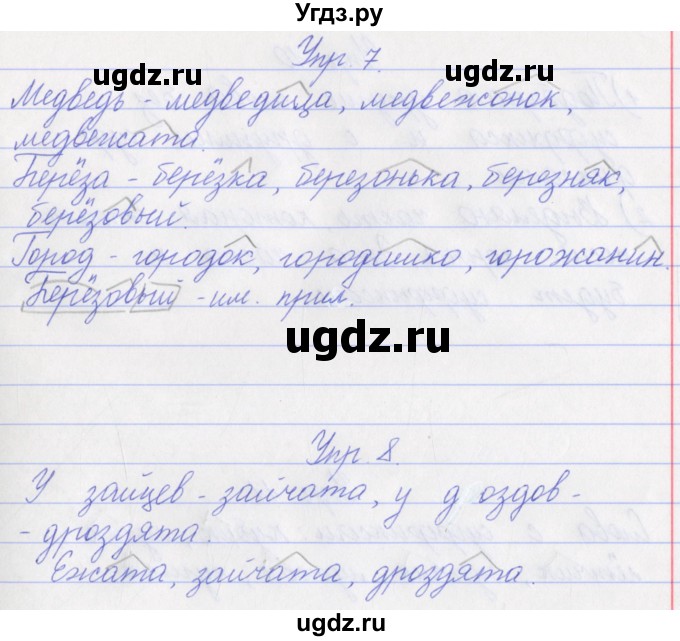 Угдз.ру
Упр. 7.
ugdz.ru
ugdz.ru
Медведь - медведица, медвежонок,
медвежата.
Берёза - берёзка, березонька, березняк,
берёзовый.
Город - городок, городишко, горожанин.
Берёзовый - им. прил.
ugdz.ru
Упр. 8.
У зайцев - зайчата, у д оздов -
- дроздята
Ежата, зайчата, дроздята.
ugdz.ru
ugdz.ru